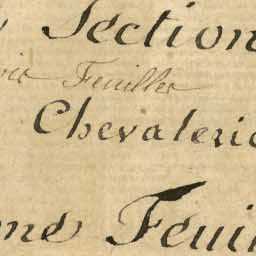 Section
Feuilles
Chevalerie
Feui